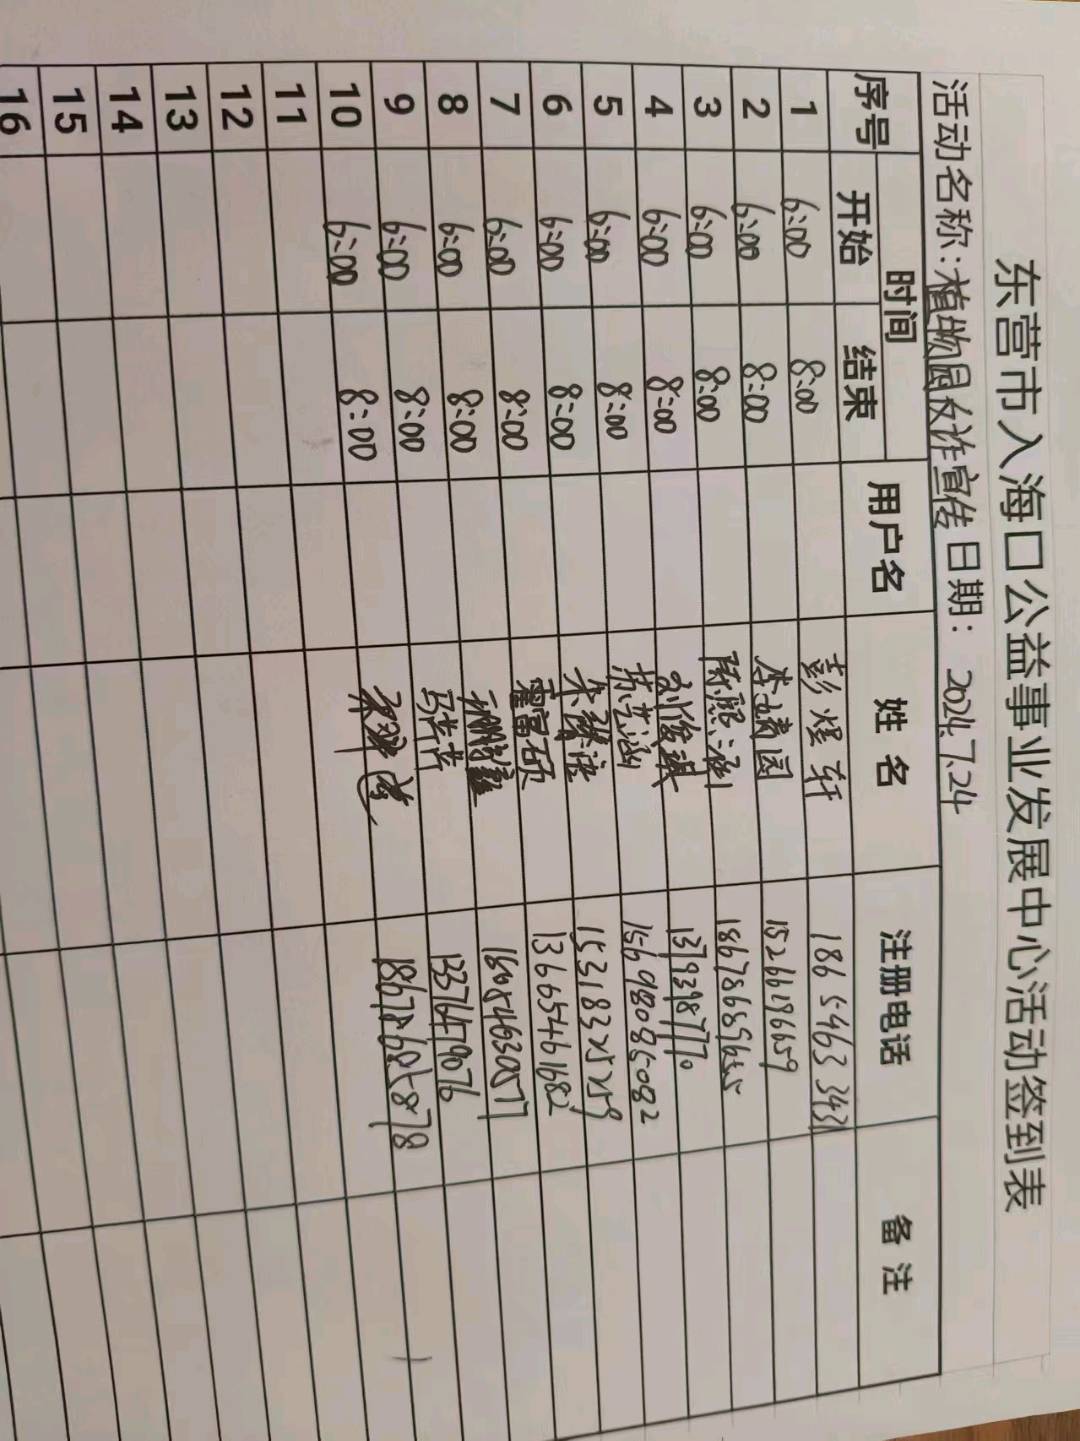 东营市入海口公益事业发展中心活动签到表
活动名称:植物园反诈宣传 日期: 2024.7.24
序号 时间 用户名 姓名 注册电话 备注
开始 结束
1 6:00 8:00 彭煜轩 186 5463 3431
2 6:00 8:00 李靖园 15266186659
3 6:00 8:00 陈熙涵
4 6:00 8:00 刘俊琪 13793987770
5 6:00 8:00 苏艺涵 15698085082
6 6:00 8:00 15318325259
7 6:00 8:00 霍富硕 13665461682
8 6:00 8:00
9 6:00 8:00 13376479076
10 6:00 8:00 18678685878
11
12
13
14
15
16